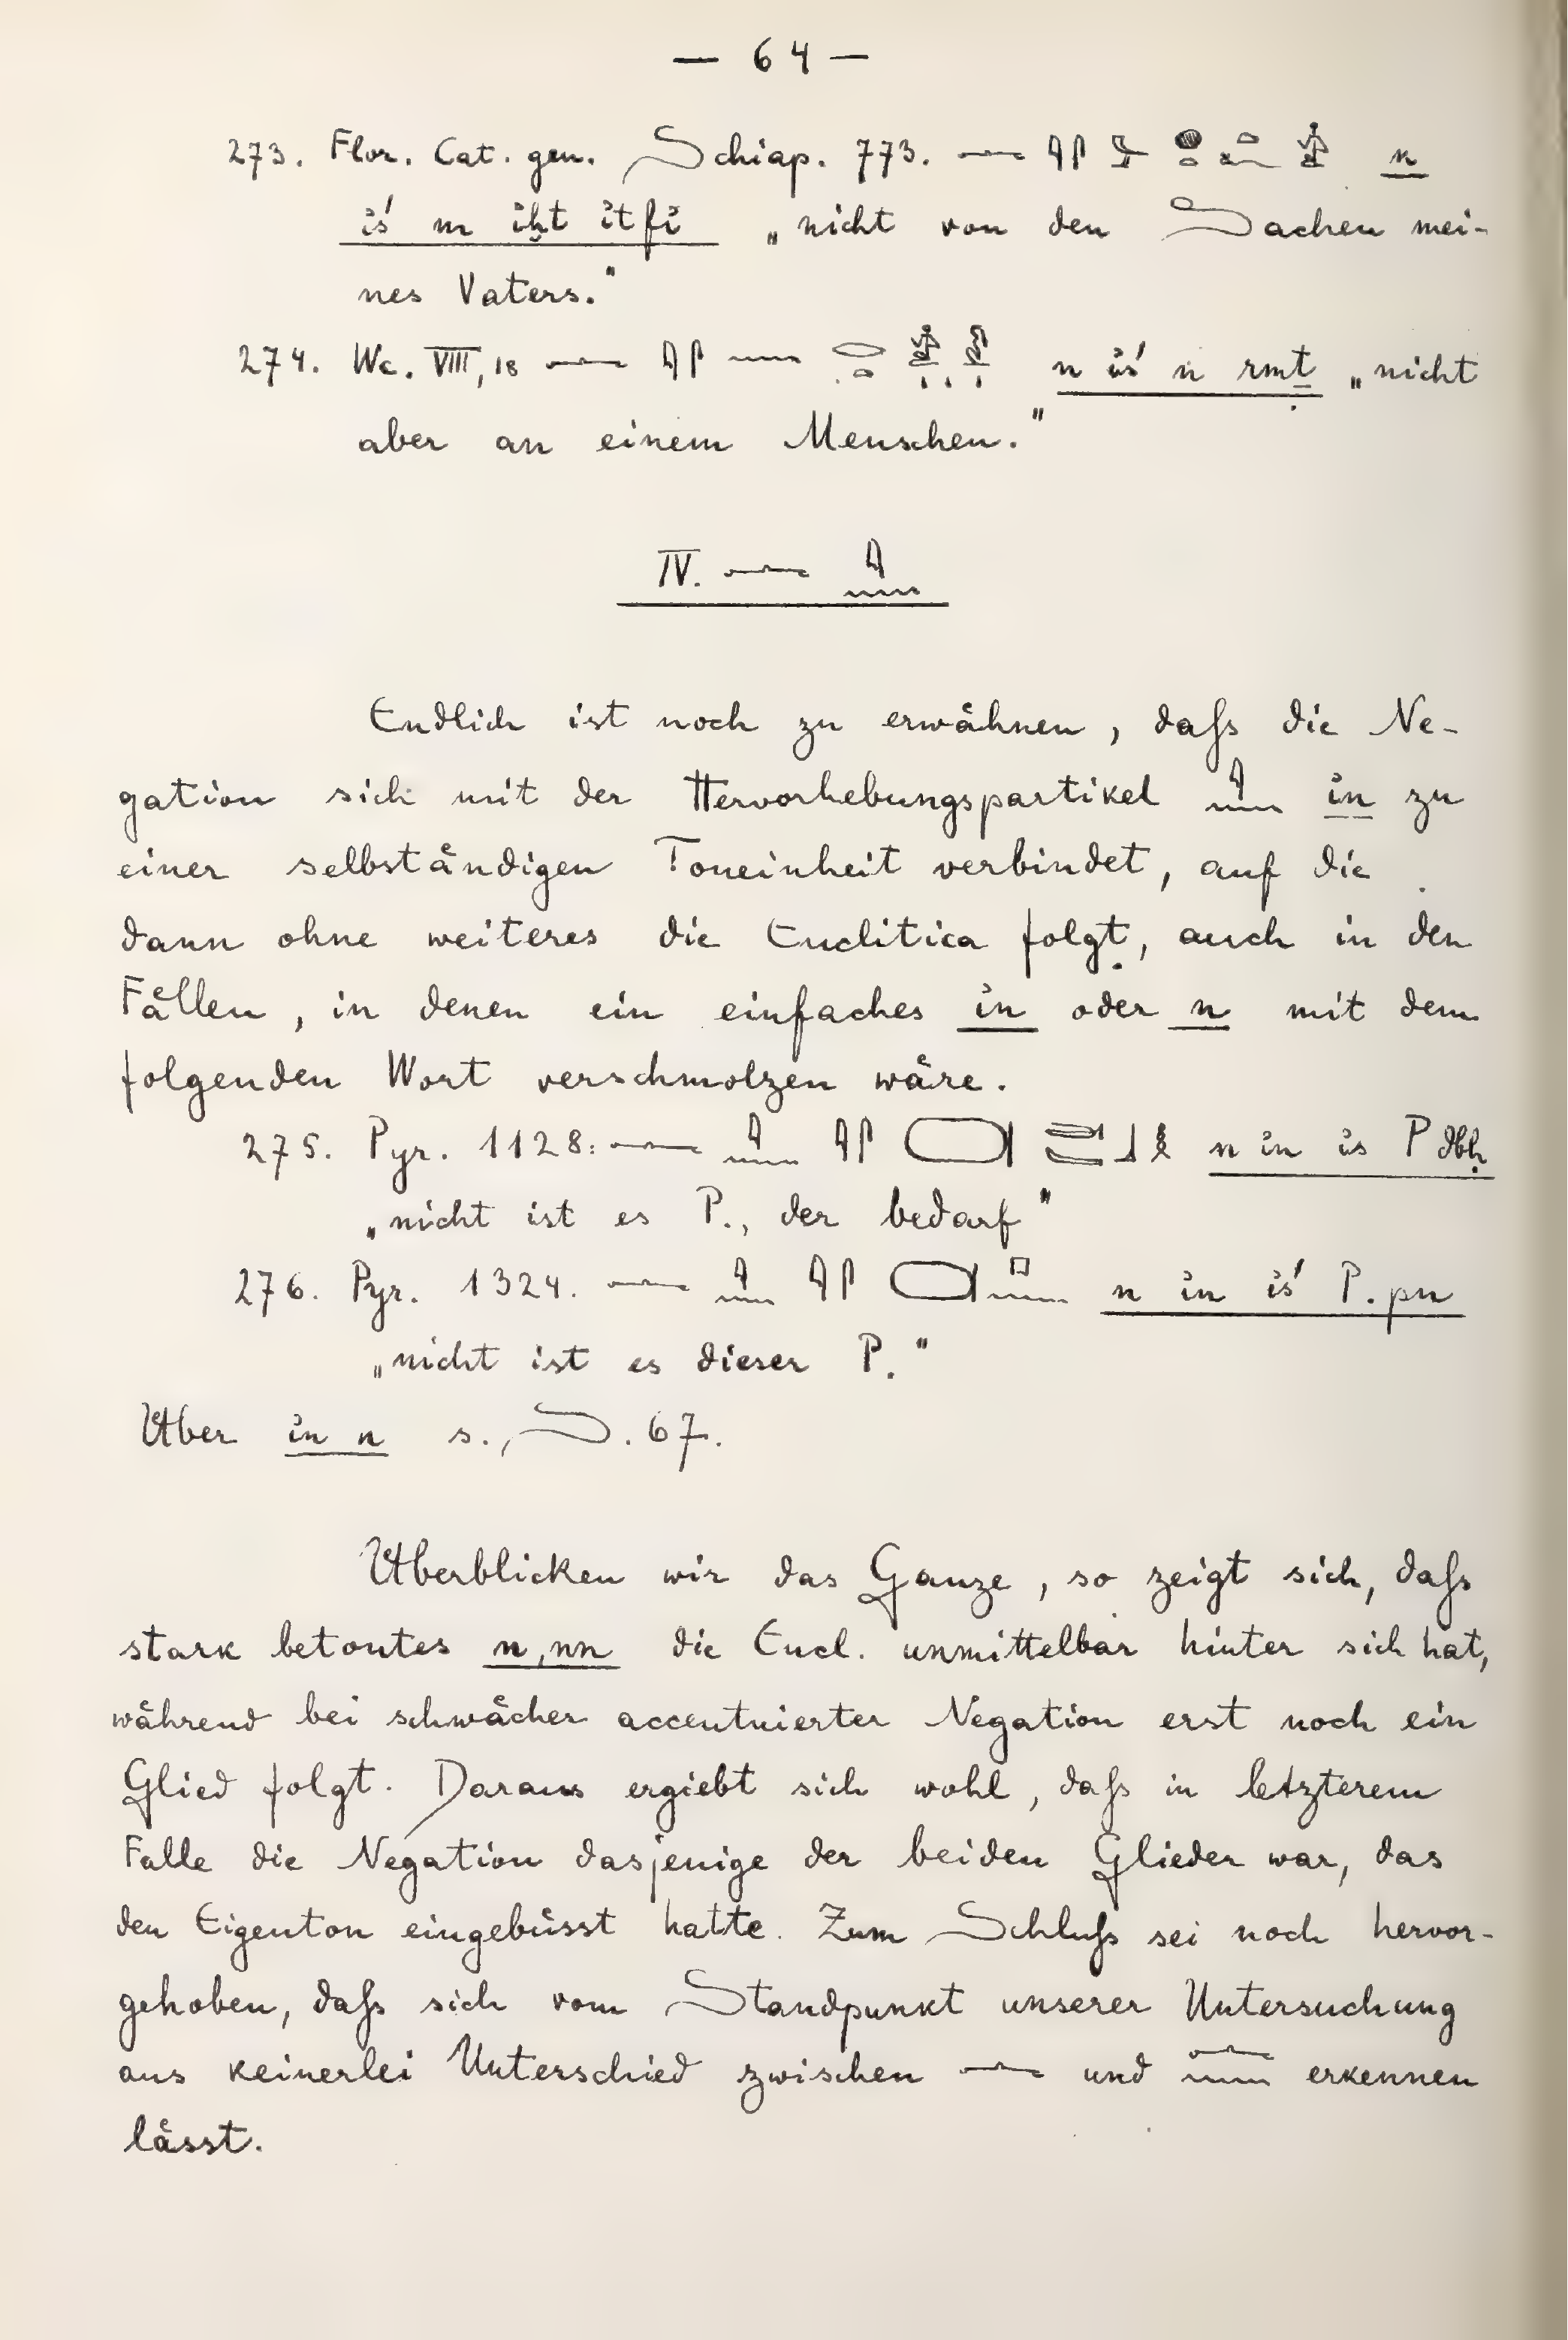 — 64 —
273. Flor. Cat. gen. Schiap. 773. n
iś m iḫt itfi „nicht von den Sachen mei-
nes Vaters."
274. Wc. VIII, 18 n iś n rmṯ „nicht
aber an einem Menschen."
IV.
Endlich ist noch zu erwähnen, daſs die Ne-
gation sich mit der Hervorhebungspartikel 𓇋𓈖 in zu
einer selbständigen Toneinheit verbindet, auf die
dann ohne weiteres die Enclitica folgt, auch in den
Fällen, in denen ein einfaches in oder n mit dem
folgenden Wort verschmolzen wäre.
275. Pyr. 1128: n in is P dbḥ
„nicht ist es P., der bedarf"
276. Pyr. 1324. n in iś P. pn
„nicht ist es dieser P."
Über in n s. S. 67.
Überblicken wir das Ganze, so zeigt sich, daſs
stark betontes n, nn die Encl. unmittelbar hinter sich hat,
während bei schwächer accentuierter Negation erst noch ein
Glied folgt. Daraus ergiebt sich wohl, daſs in letzterem
Falle die Negation dasjenige der beiden Glieder war, das
den Eigenton eingebüsst hatte. Zum Schluſs sei noch hervor-
gehoben, daſs sich vom Standpunkt unserer Untersuchung
aus keinerlei Unterschied zwischen 𓂜 und 𓂜𓈖 erkennen
lässt.